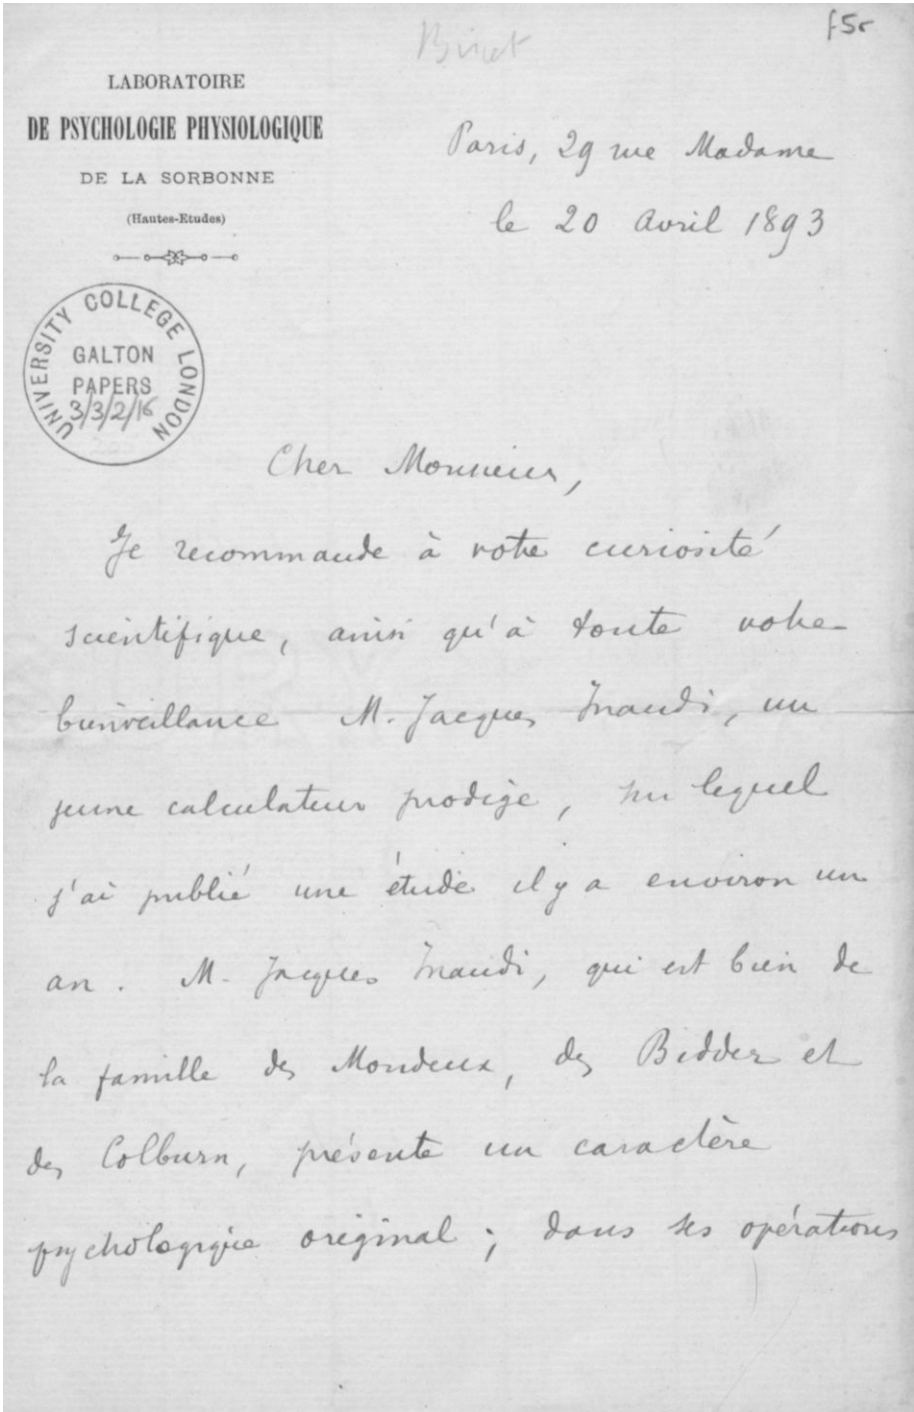 Binet
f5r
LABORATOIRE
DE PSYCHOLOGIE PHYSIOLOGIQUE
DE LA SORBONNE
(Hautes-Etudes)
Paris, 29 rue Madame
le 20 Avril 1893
UNIVERSITY COLLEGE LONDON
GALTON
PAPERS
3/3/2/16
Cher Monsieur,
Je recommande à votre curiosité
scientifique, ainsi qu'à toute votre
bienveillance M. Jacques Inaudi, un
jeune calculateur prodige, sur lequel
j'ai publié une étude il y a environ un
an. M. Jacques Inaudi, qui est bien de
la famille des Mondeux, des Bidder et
des Colburn, présente un caractère
psychologique original ; dans ses opérations